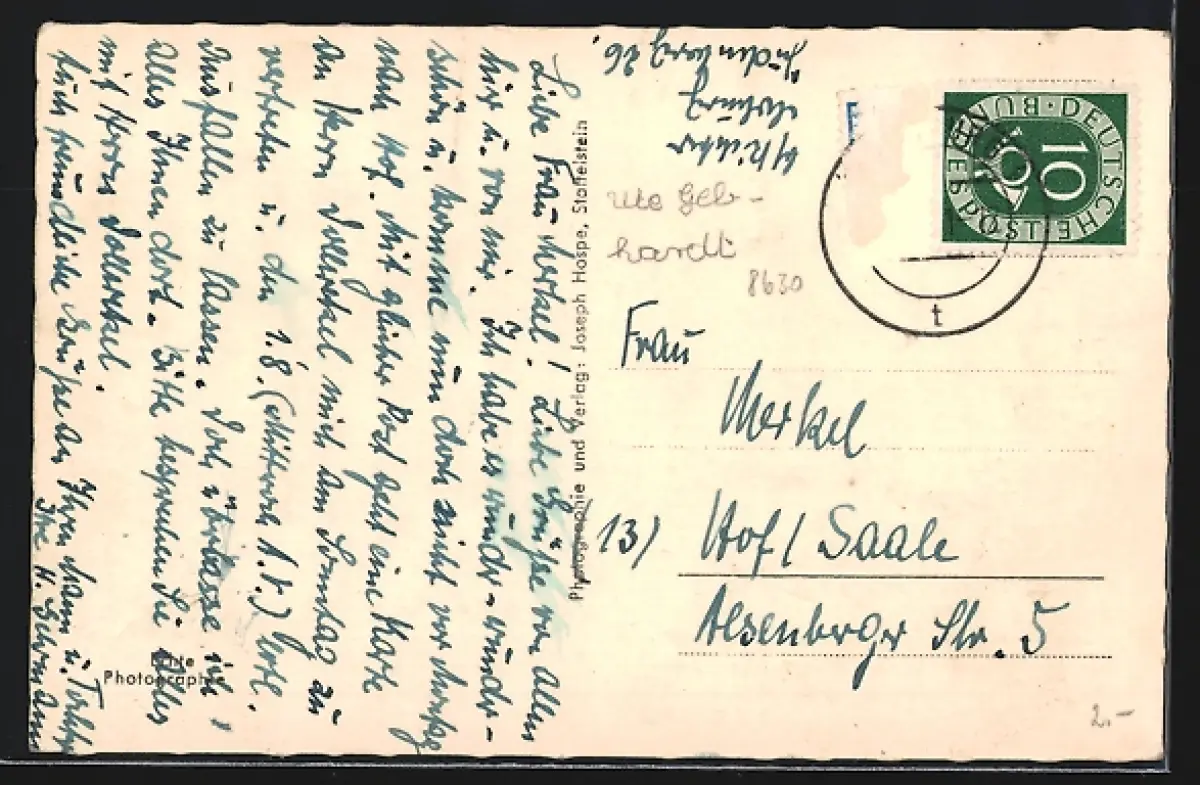 Liebe Frau Merkel! Liebe Grüße von allen
hier u. von mir. Ich habe es wunder-wunder-
schön u. komme nun doch nicht vor
nach Hof. Mit gleicher Post geht eine Karte
an Herrn mich am Sonntag zu
vertreten u. den 1.8. (Mittwoch 1.8.)
ausfallen zu lassen. Doch überlasse ich
alles Ihnen dort. Bitte besprechen Sie alles
mit Herrn
herzliche Grüße an Ihren Mann u.
Ihre H.
Photographie und Verlag: Joseph Haspe, Staffelstein
Echte
Photographie
Ute Geb-
hardt
8630
Frau
Merkel
13) Hof/Saale
Alsenberger Str. 5
DEUTSCHE BUNDESPOST
10
t
2.-